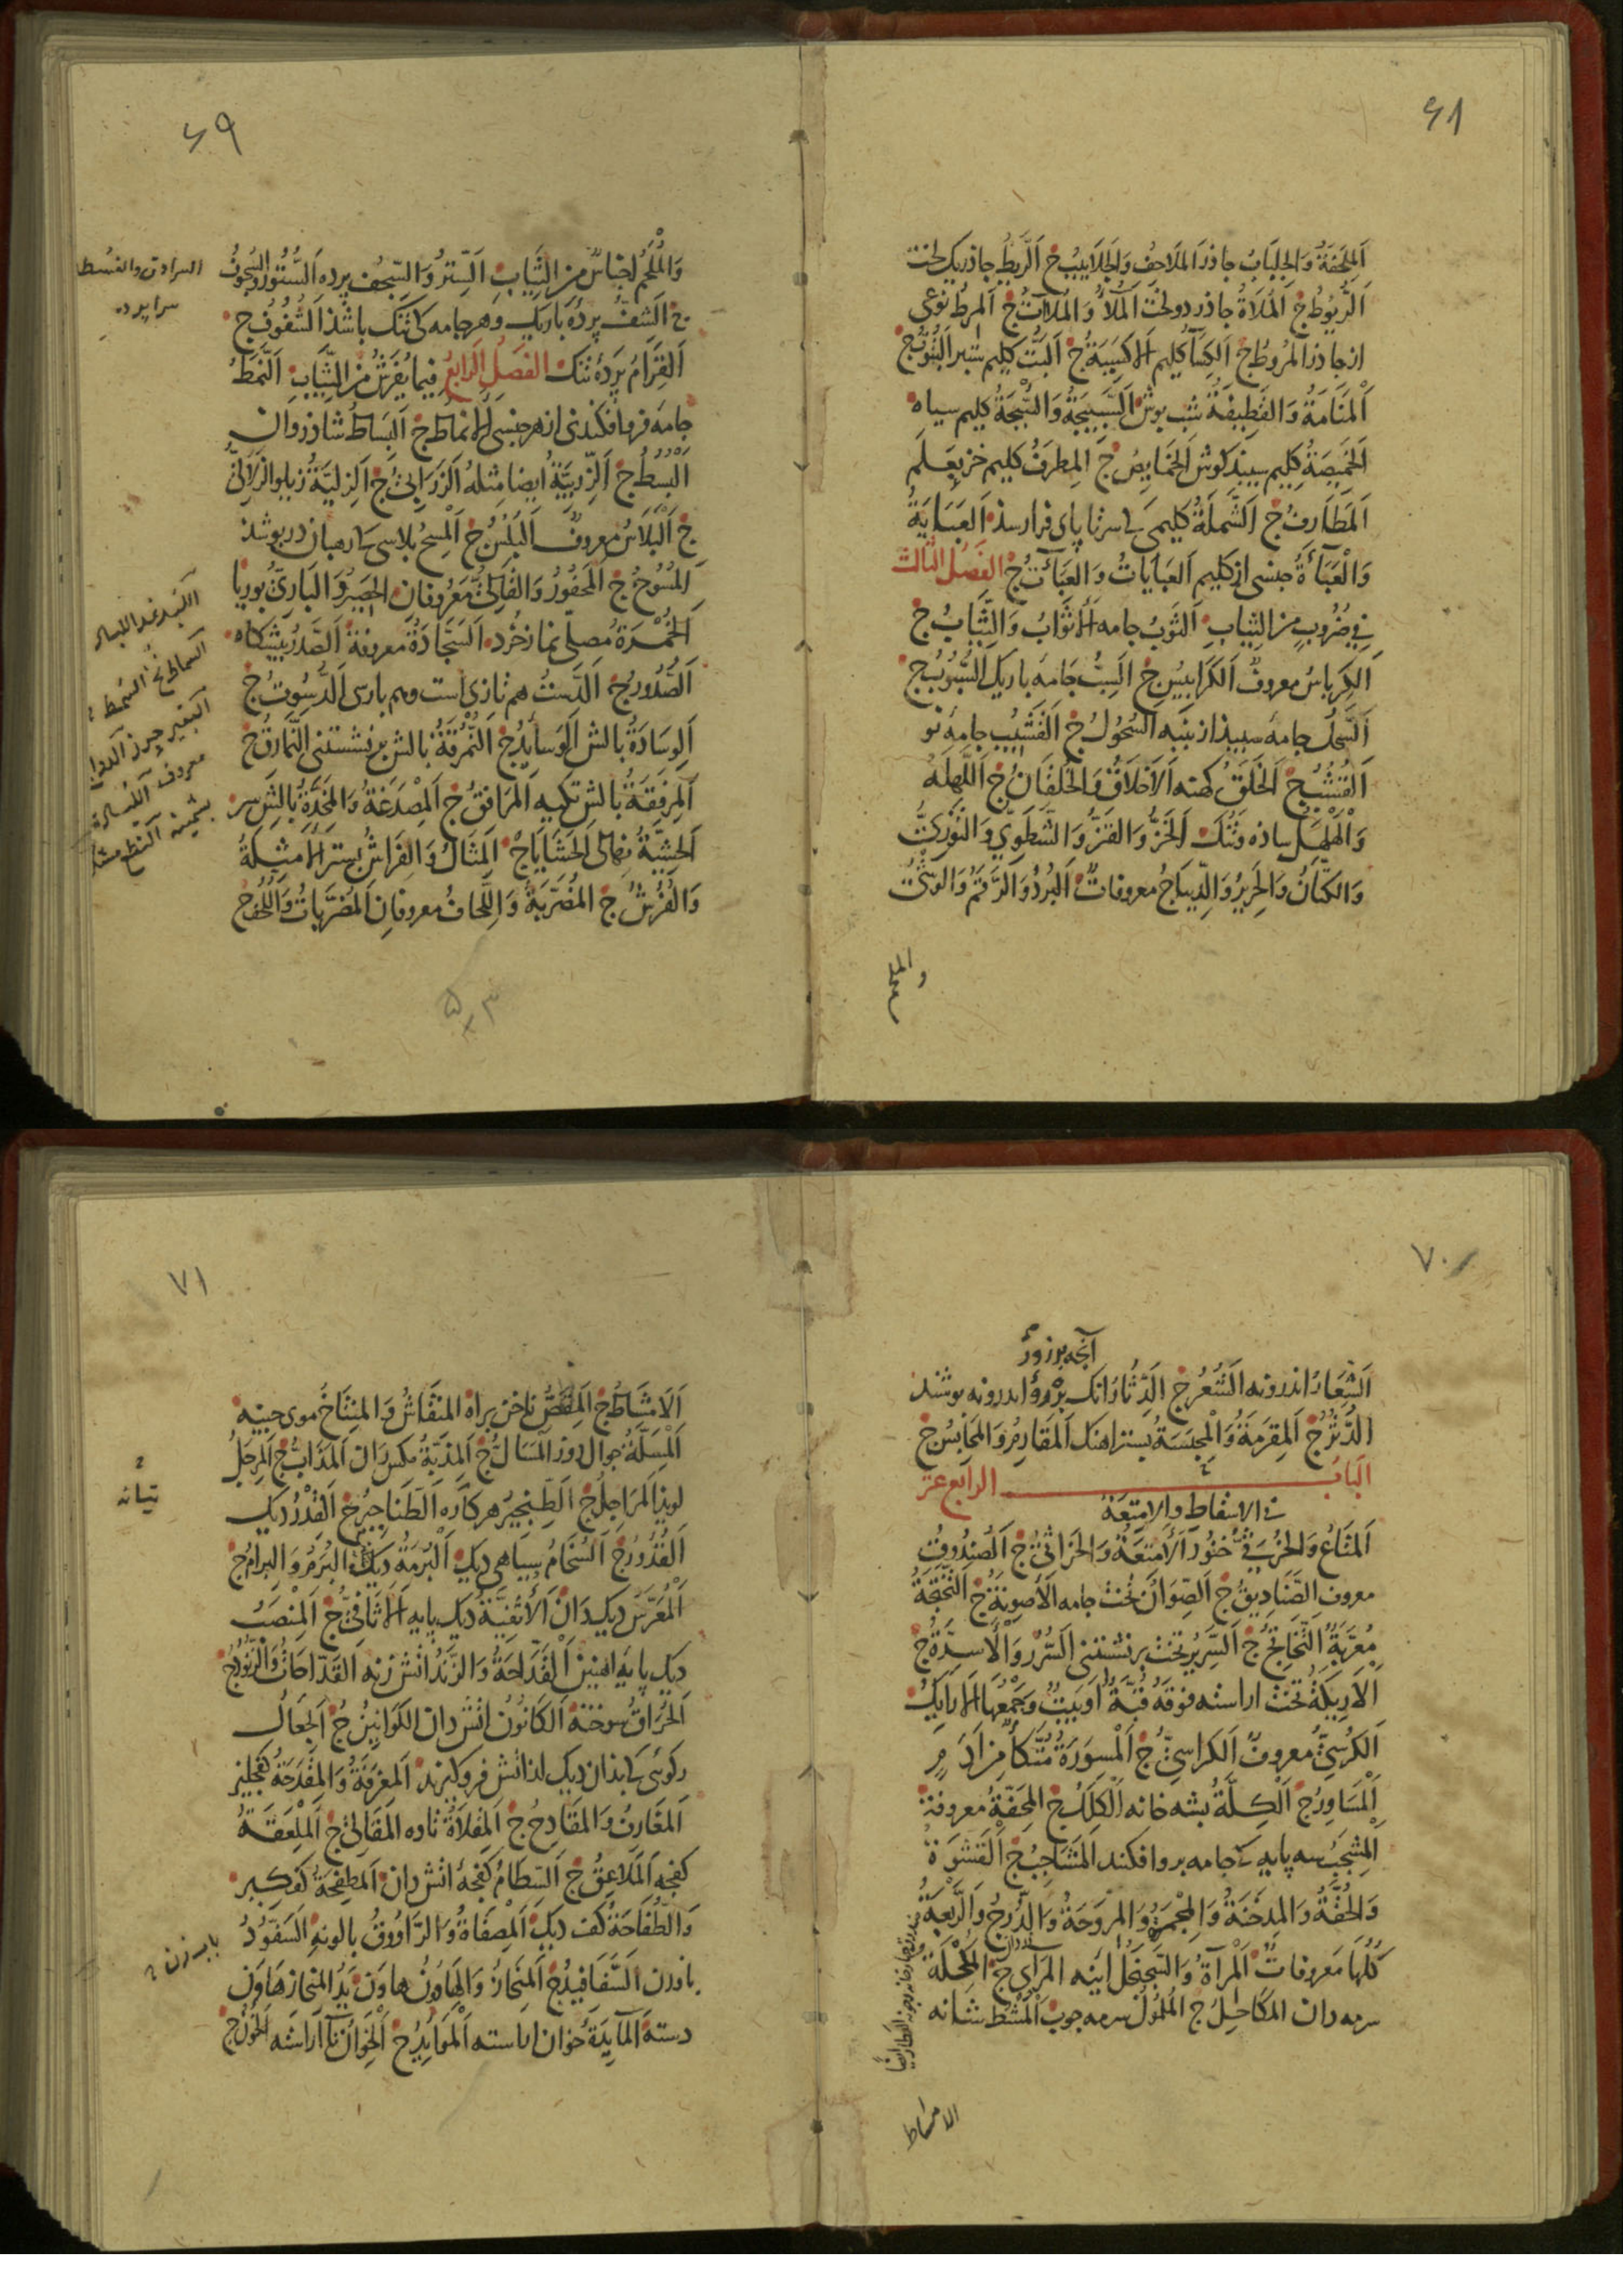 ۶۸
اَلمِلحَفَةُ وَالجِلبَابُ جاذر اَلمَلَاحِفُ وَالجَلَابِيبُ ج اَلرَّيطُ جاذر یک لخت
اَلرُّيُوطُ ج اَلمُلَاةُ جاذر دو لخت اَلمُلَأُ وَالمُلَاتُ ج اَلمِرطُ نوعی
از جاذر اَلمُرُوطُ ج اَلكِسَآءُ کلیم اَلاَكسِيَةُ ج اَلبَتُّ کلیم ستبر اَلبُتُوتُ ج
اَلمَنَامَةُ وَالقَطِيفَةُ شب پوش اَلسَّبِيجَةُ وَالسُّبجَةُ کلیم سیاه
اَلخَمِيصَةُ کلیم سپید کوش اَلخَمَايِصُ ج اَلمِطرَفُ کلیم خز بعلم
اَلمَطَارِفُ ج اَلشَّملَةُ کلیمی کی سر تا پای فرا رسذ اَلعَبَايَةُ
وَالعَبَآءَةُ جنسی از کلیم اَلعَبَايَاتُ وَالعَبَآءَتُ ج الفَصلُ الثَّالث
فِي ضُرُوبٍ مِنَ الثِّيَابِ اَلثَّوبُ جامه اَلاَثوَابُ وَالثِّيَابُ ج
اَلكِربَاسُ معروفٌ اَلكَرَابِيسُ ج اَلسِّبُّ جامهٔ باریک اَلسُّبُوبُ ج
اَلسَّحلُ جامهٔ سپیذ از پنبه اَلسُّحُولُ ج اَلقَشِيبُ جامهٔ نو
اَلقُشُبُ ج اَلخَلَقُ کهنه اَلاَخلَاقُ وَالخُلقَانُ ج اَللَّهلَهُ
وَالهَلهَلُ ساذه و تنک اَلخَزُّ وَالقَزُّ وَالشَّطَوِيُّ وَالتَّوَّزِيُّ
وَالكَتَّانُ وَالحَرِيرُ وَالدِّيبَاجُ معروفاتٌ اَلبُردُ وَالرَّقمُ وَالوَشيُ
والملحم
۶۹
وَالمُلحَمُ اجناسٌ من الثِّيَابِ اَلسِّترُ وَالسِّجفُ پرده اَلسُّتُورُ وَالسُّجُوفُ
ج اَلشَّفُّ پردهٔ باریک و هر جامه کی تنک باشذ اَلشُّفُوفُ ج
اَلقِرَامُ پردهٔ تنک الفَصلُ الرَّابِعُ فِيمَا يُفرَشُ مِنَ الثِّيَابِ اَلنَّمَطُ
جامهٔ فرو افکندنی از هر جنسی اَلاَنمَاطُ ج اَلبِسَاطُ شاذروان
اَلبُسُطُ ج اَلزِّربِيَّةُ ايضا مِثلُهُ اَلزَّرَابِيُّ ج اَلزِّلِّيَّةُ زیلو اَلزَّلَالِيُّ
ج اَلبَلَاسُ معروفٌ اَلبُلُسُ ج اَلمِسحُ پلاسی کی رهبان در پوشذ
اَلمُسُوحُ ج اَلمَحفُورُ وَالقَالِيُّ مَعرُوفان اَلحَصِيرُ وَالبَارِيُّ بوریا
اَلخُمرَةُ مُصلّی نماز خُرد اَلسَّجَّادَةُ معروفة اَلصَّدرُ پیشکاه
اَلصُّدُورُ ج اَلدَّستُ هم تازی است و هم پارسی اَلدُّسُوتُ ج
اَلوِسَادَةُ بالش اَلوَسَايِدُ ج اَلنُّمرُقَةُ بالش بر نشستنی اَلنَّمَارِقُ ج
اَلمِرفَقَةُ بالش تکیه اَلمَرَافِقُ ج اَلمِصدَغَةُ وَالمِخَدَّةُ بالش سر
اَلحَشِيَّةُ نهالی اَلحَشَايَا ج اَلمِثَالُ وَالفِرَاشُ بستر اَلاَمثِلَةُ
وَالفُرُشُ ج اَلمُضَرَّبَةُ وَاللِّحَافُ معروفانِ اَلمُضَرَّبَاتُ وَاللُّحُفُ ج
السرادق والفسطا
سرا پرده
السماط ج السمط
معروف
۷۰
آنچه بر زور
اَلشِّعَارُ اندرونه اَلشُّعُرُ ج اَلدِّثَارُ انک بر اندرونه پوشند
اَلدُّثُرُ ج اَلمِقرَمَةُ وَالمِحبَسَةُ بستر اهنک اَلمَقَارِمُ وَالمَحَابِسُ ج
اَلبابُ الرابع عشر
فى الاسقاط والامتعة
اَلمَتَاعُ وَالخُرثِيُّ خنور اَلاَمتِعَةُ وَالخَرَاثِيُّ ج اَلصُّندُوقُ
معروف اَلصَّنَادِيقُ ج اَلصِّوَانُ تخت جامه اَلاَصوِنَةُ ج اَلتَّختَجَةُ
مُعَرَّبَةٌ اَلتَّخَاتِجُ ج اَلسَّرِيرُ تخت بر نشستنی اَلسُّرُرُ وَالاَسِرَّةُ ج
اَلاَرِيكَةُ تخت اراسته فوقه قُبَّةٌ اَو بَيتٌ وَجَمعُهَا اَلاَرَايِكُ
اَلكُرسِيُّ معروف اَلكَرَاسِيُّ ج اَلمِسوَرَةُ مُتَّكَأٌ مِن اَدَمٍ
اَلمَسَاوِرُ ج اَلكِلَّةُ پشه خانه اَلكِلَلُ ج اَلمِحَفَّةُ معروفة
اَلمِشجَبُ سه پایه کی جامه برو افکند اَلمَشَاجِبُ ج اَلقَشوَةُ
وَالحُقَّةُ وَالمِدخَنَةُ وَالمِجمَرَةُ وَالمِروَحَةُ وَالدُّرجُ وَالرَّبعَةُ
كُلُّهَا مَعروفاتٌ اَلمِرآةُ وَالسَّجَنجَلُ اینه اَلمَرَائِي ج اَلمُكحُلَةُ
سرمه دان اَلمَكَاحِلُ ج اَلمُلمُولُ سرمه چوب اَلمُشطُ شانه
الامشاط
۷۱
اَلاَمشَاطُ ج اَلمِقَصُّ ناخن براه اَلمِنقَاشُ وَالمِنتَاخُ موی چینه
اَلمِسَلَّةُ جوال دوز اَلمَسَالُّ ج اَلمِذَبَّةُ مکس ران اَلمَذَابُّ ج اَلمِرجَلُ
لویذ اَلمَرَاجِلُ ج اَلطِّنجِيرُ هرکاره اَلطَّنَاجِيرُ ج اَلقِدرُ دیک
اَلقُدُورُ ج اَلسُّخَامُ سیاهی دیک اَلبُرمَةُ دیک اَلبُرَمُ وَالبِرَامُ ج
اَلمُعَرَّسُ دیک دان اَلاُثفِيَّةُ دیک پایه اَلاَثَافِيُّ ج اَلمِنصَبُ
دیک پایه اهنین اَلقَدَّاحَةُ وَالزَّندُ اتش زنه اَلقَدَّاحَاتُ وَالزُّنُودُ ج
اَلحُرَاقُ سوخته اَلكَانُونُ اتش دان اَلكَوَانِينُ ج اَلجِعَالُ
رکوئی کی بذان دیک از اتش فرو کیرند اَلمِغرَفَةُ وَالمِقدَحَةُ کفچلیز
اَلمَغَارِفُ وَالمَقَادِحُ ج اَلمِقلَاةُ تاوه اَلمَقَالِي ج اَلمِلعَقَةُ
کفچه اَلمَلَاعِقُ ج اَلسِّطَامُ کفچهٔ اتش دان اَلمِطفَحَةُ کفکیر
وَالطُّفَاحَةُ کفک دیک اَلمِصفَاةُ وَالرَّاوُوقُ پالونه اَلسَّفُّودُ
بابزن اَلسَّفَافِيدُ ج اَلمِنحَازُ وَالهَاوُنُ هاون يَدُ المِنحَاز هَاوَن
دسته اَلمَايِدَةُ خوان اراسته اَلمَوَايِدُ ج اَلخِوَانُ نا اراسته اَلخُونُ ج
تیانه
بابزن